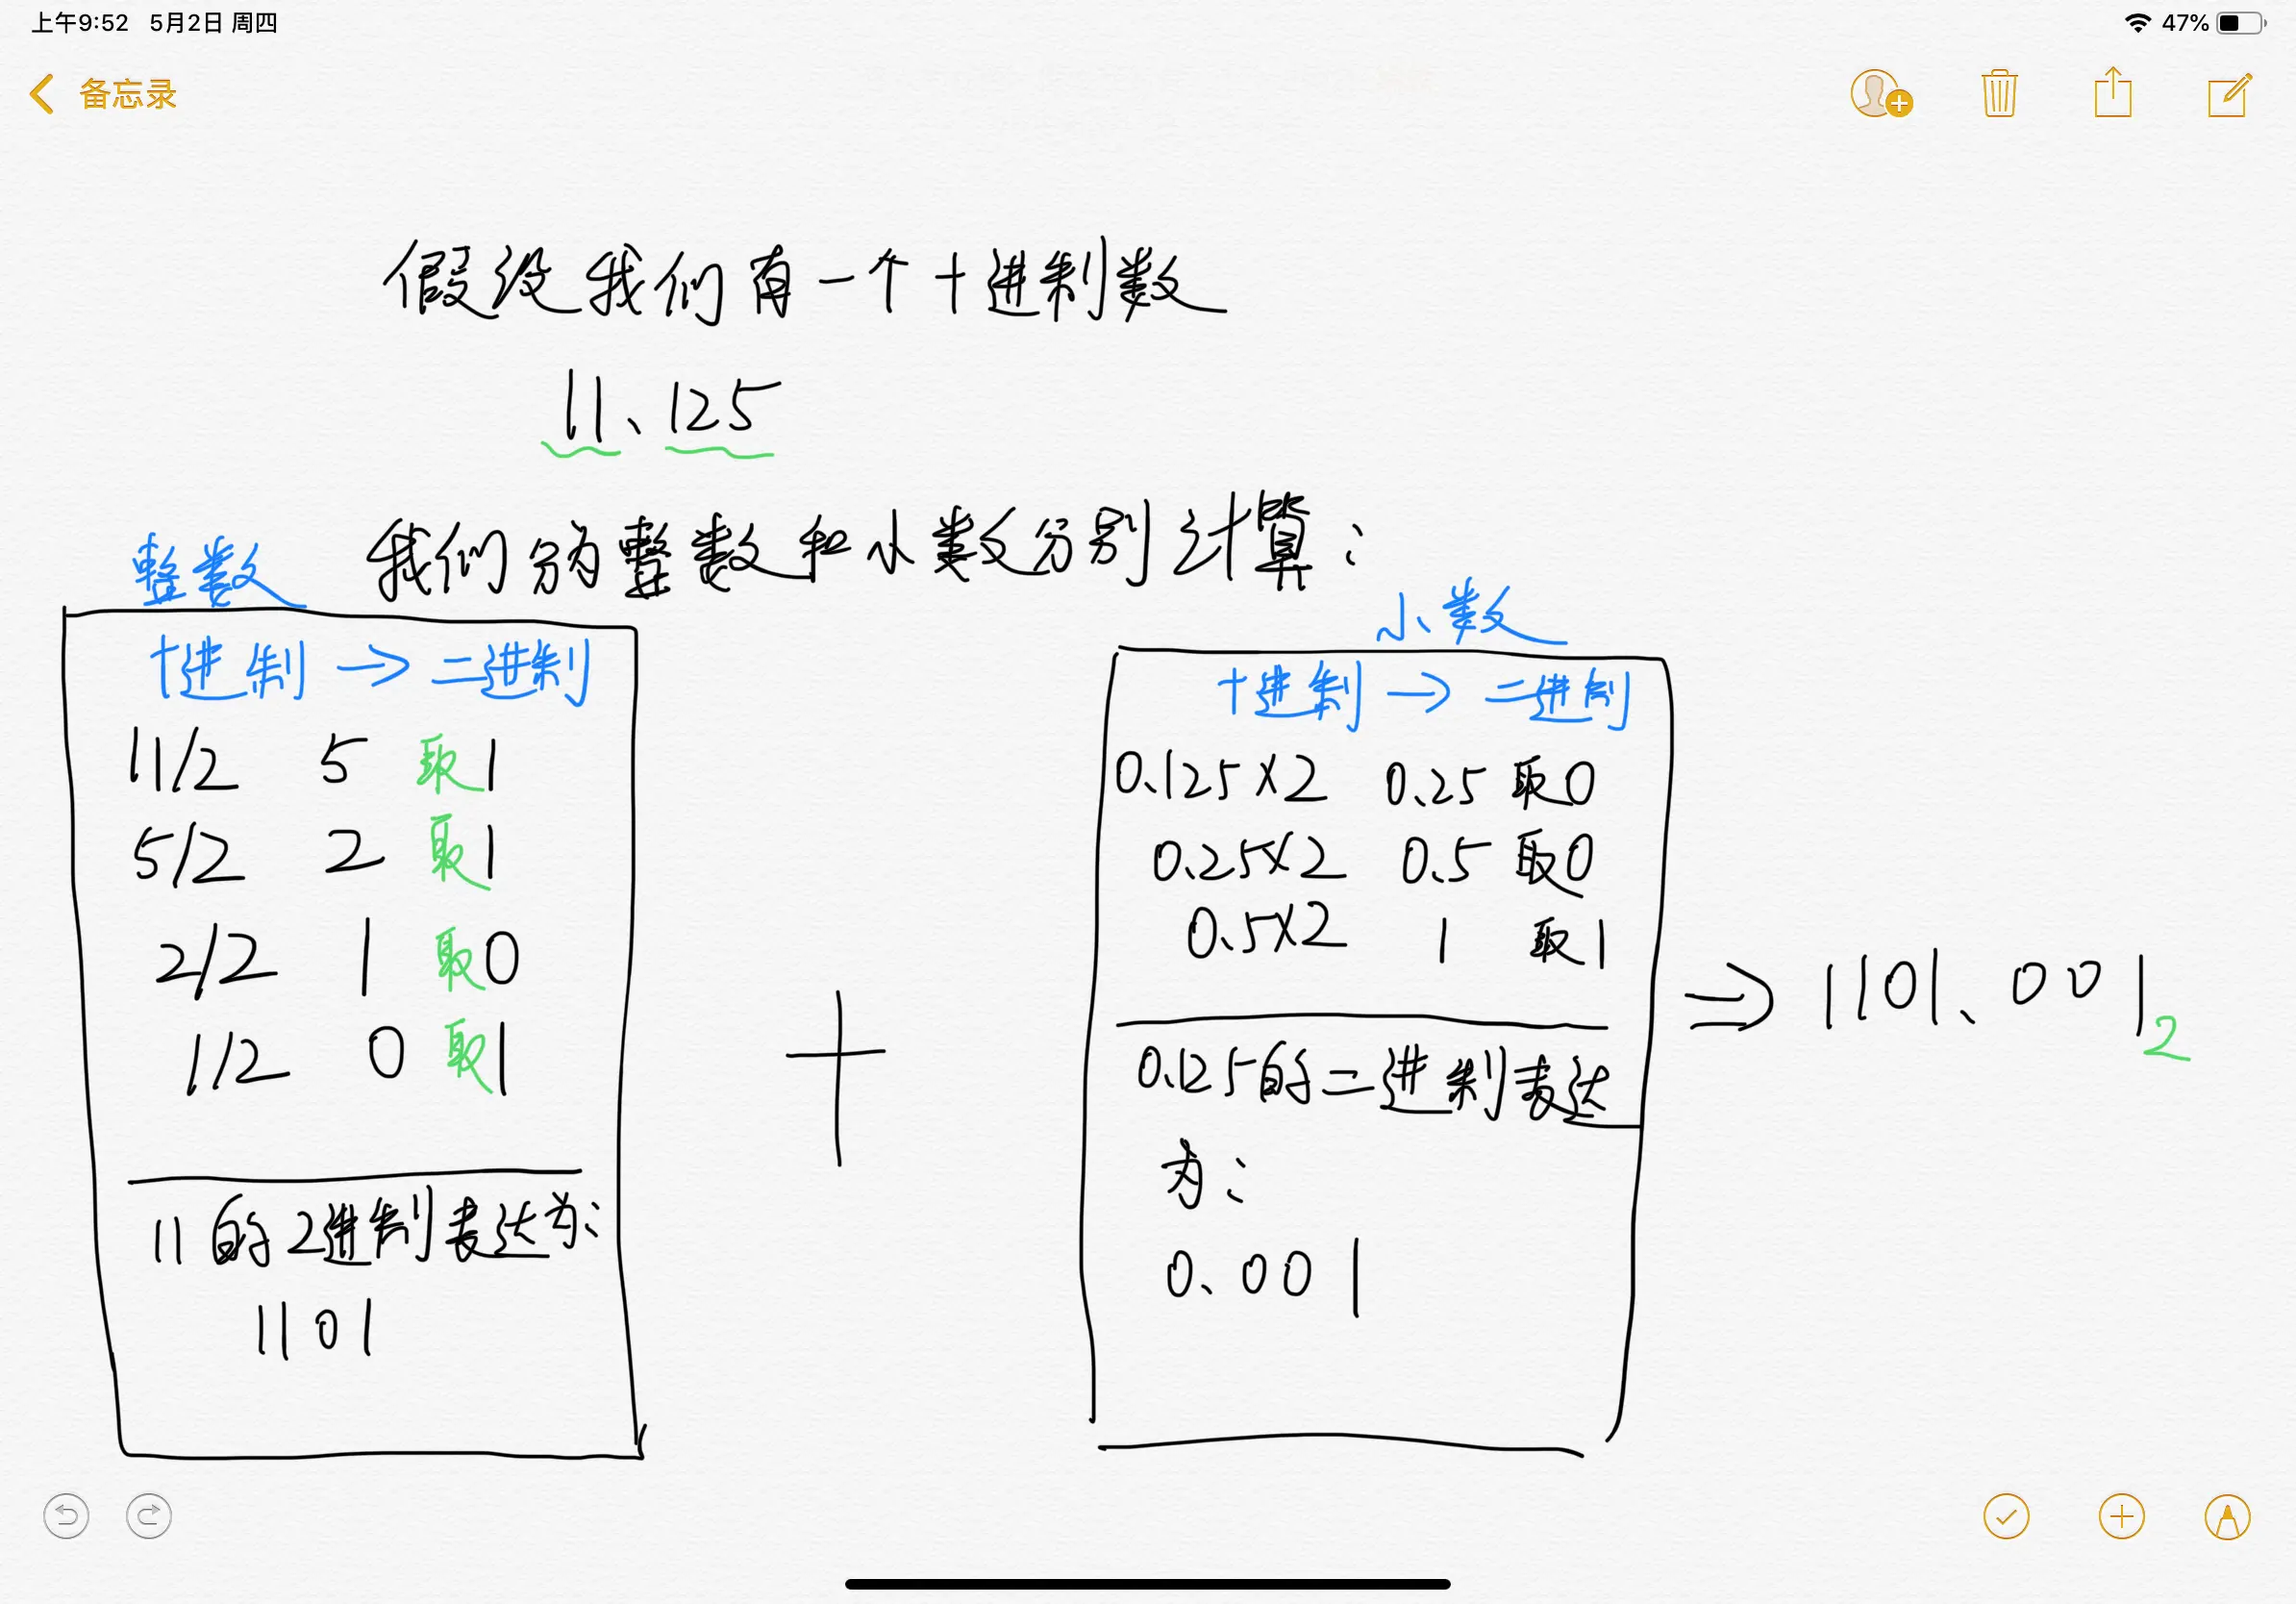 上午9:52 5月2日 周四
47%
备忘录
假设我们有一个十进制数
11、125
我们分为整数和小数分别计算:
整数
十进制 → 二进制
11/2 5 取1
5/2 2 取1
2/2 1 取0
1/2 0 取1
11的2进制表达为:
1101
+
小数
十进制 → 二进制
0.125×2 0.25 取0
0.25×2 0.5 取0
0.5×2 1 取1
0.125的二进制表达
为:
0.001
⇒ 1101、001₂